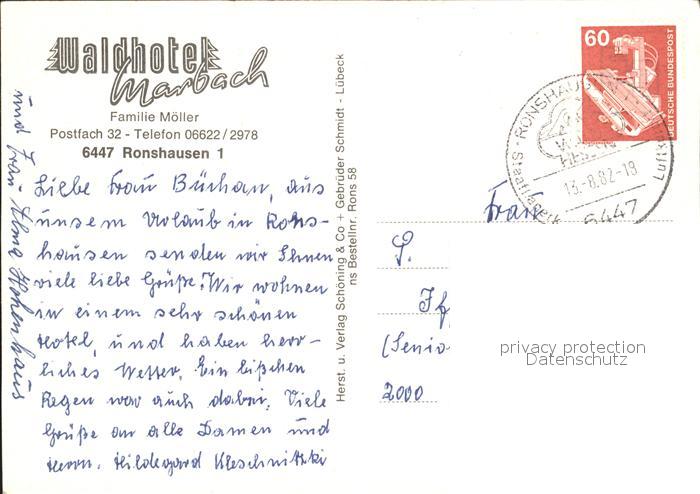 Waldhotel
Marbach
Familie Möller
Postfach 32 - Telefon 06622/2978
6447 Ronshausen 1
Liebe Frau Büchan, aus
unsem Urlaub in Rons-
hausen senden wir Ihnen
viele liebe Grüße. Wir wohnen
in einem sehr schönen
Hotel, und haben herr-
liches Wetter. Ein bißchen
Regen war auch dabei. Viele
Grüße an alle Damen und
Herrn. Hildegard Kleschnitzki
und Frau Alma Hohenhaus
Herst. u. Verlag Schöning & Co + Gebrüder Schmidt - Lübeck
ns Bestellnr. Rons 58
60
DEUTSCHE BUNDESPOST
RONSHAUSEN
13.-8.82-19
6447
Frau
S.
(Senio
2000
privacy protection
Datenschutz